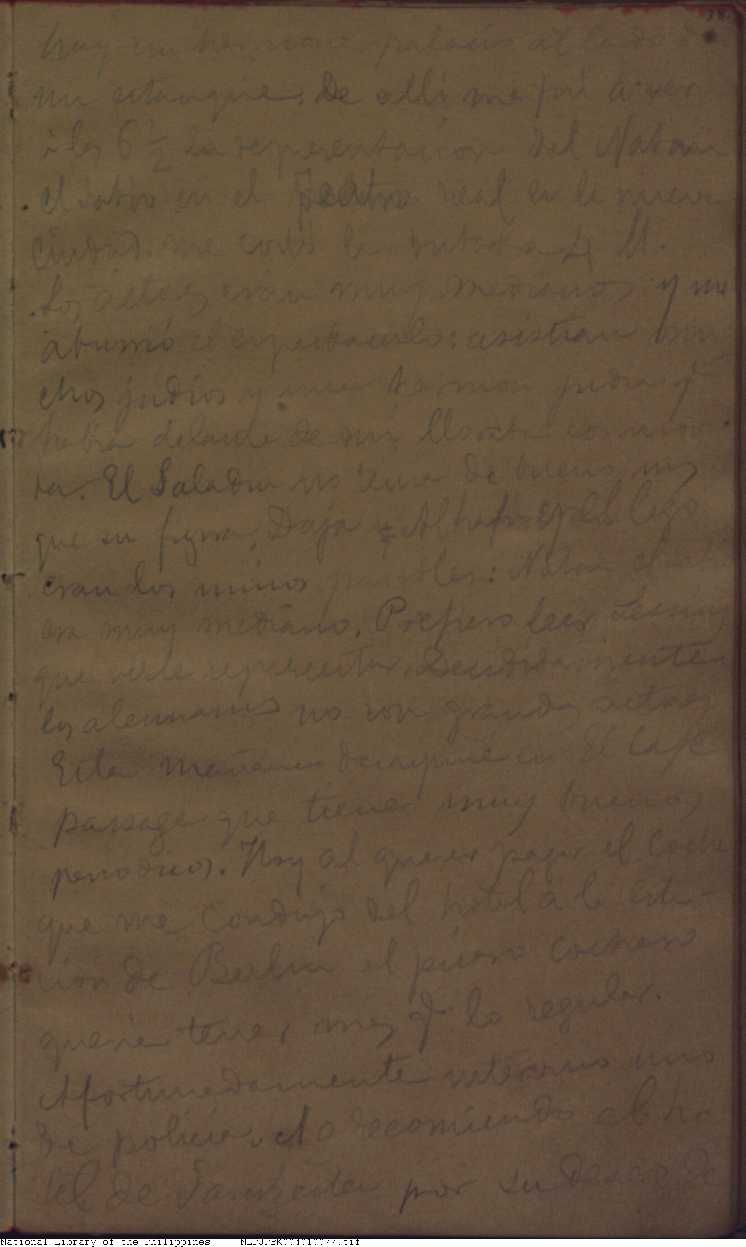 hay un hermoso palacio al lado de
un estanque. De allí me fuí a ver
á las 6 ½ la representacion del Natan
el sabio en el Teatro real en la nueva
ciudad: me costó la butaca 4 M.
Los actores eran muy medianos y me
aburrió el espectáculo: asistian mu
chos judíos y una hermosa judia q.
habia delante de mí lloraba conmovi
da. El Saladin no tenia de bueno mas
que su figura, Daja y Alhafi y el lego
eran los menos pasables: Natan el
era muy mediano. Prefiero leer Lessing
que verle representar. Decididamente
los alemanes no son grandes actores
Esta mañana desayuné en el Café
passage que tiene muy buenos
periodicos. Hoy al querer pagar el coche
que me condujo del hotel a la esta-
cion de Berlin el pícaro cochero
queria tener mas q. lo regular.
Afortunadamente intervino uno
de policia.
tel de por su deseo de
National Library of the Philippines